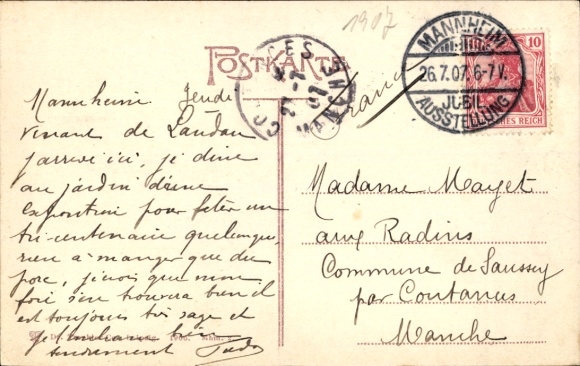 1907
POSTKARTE
MANNHEIM
26.7.07. 6-7 V.
JUBIL.
AUSSTELLUNG
10
DEUTSCHES REICH
France
Mannheim Jeudi
Venant de Landau
j'arrive ici, je dine
au jardin d'une
exposition pour fêter un
tri-centenaire quelconque,
rien à manger que du
porc, je crois que mon
foie s'en trouvera bien il
est toujours très sage et
je t'embrasse bien
tendrement
Madame Mayet
aux Radins
Commune de Saussey
par Coutances
Manche